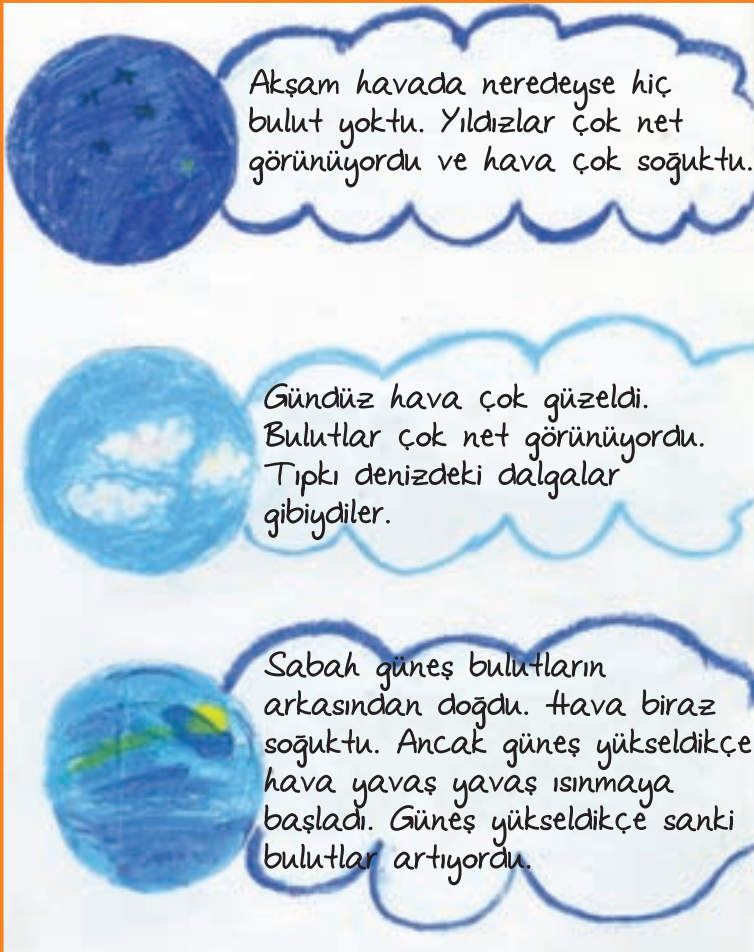 Akşam havada neredeyse hiç
bulut yoktu. Yıldızlar çok net
görünüyordu ve hava çok soğuktu.
Gündüz hava çok güzeldi.
Bulutlar çok net görünüyordu.
Tıpkı denizdeki dalgalar
gibiydiler.
Sabah güneş bulutların
arkasından doğdu. Hava biraz
soğuktu. Ancak güneş yükseldikçe
hava yavaş yavaş ısınmaya
başladı. Güneş yükseldikçe sanki
bulutlar artıyordu.